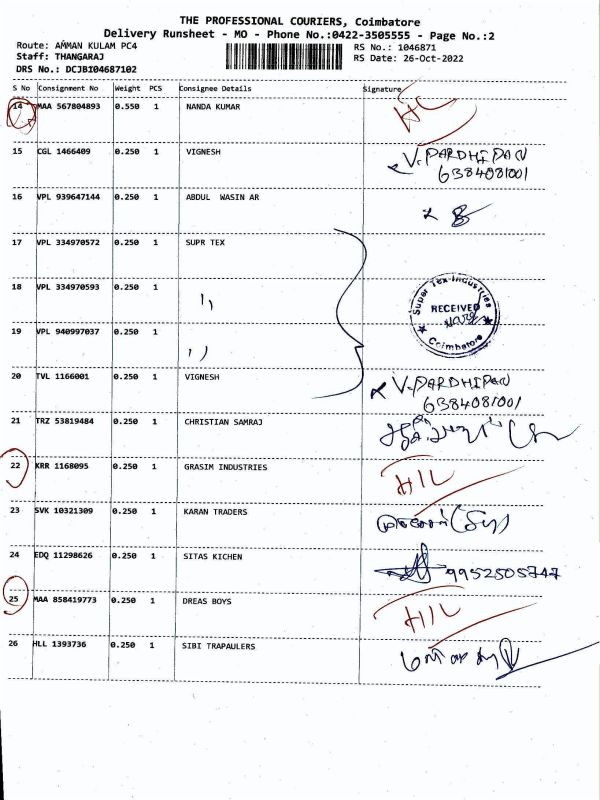 THE PROFESSIONAL COURIERS, Coimbatore
Delivery Runsheet - MO - Phone No.:0422-3505555 - Page No.:2
Route: AMMAN KULAM PC4 RS No.: 1046871
Staff: THANGARAJ RS Date: 26-Oct-2022
DRS No.: DCJBI04687102
S No Consignment No Weight PCS Consignee Details Signature
14 MAA 567804893 0.550 1 NANDA KUMAR
15 CGL 1466409 0.250 1 VIGNESH V. PARDHIPAN
6384081001
16 VPL 939647144 0.250 1 ABDUL WASIN AR
17 VPL 334970572 0.250 1 SUPR TEX
18 VPL 334970593 0.250 1 ,, Super Tex Industries
RECEIVED
19 VPL 940997037 0.250 1 ,, Coimbatore
20 TVL 1166001 0.250 1 VIGNESH V. PARDHIPAN
6384081001
21 TRZ 53819484 0.250 1 CHRISTIAN SAMRAJ
22 KRR 1168095 0.250 1 GRASIM INDUSTRIES H/L
23 SVK 10321309 0.250 1 KARAN TRADERS
24 EDQ 11298626 0.250 1 SITAS KICHEN 9952505747
25 MAA 858419773 0.250 1 DREAS BOYS H/L
26 HLL 1393736 0.250 1 SIBI TRAPAULERS